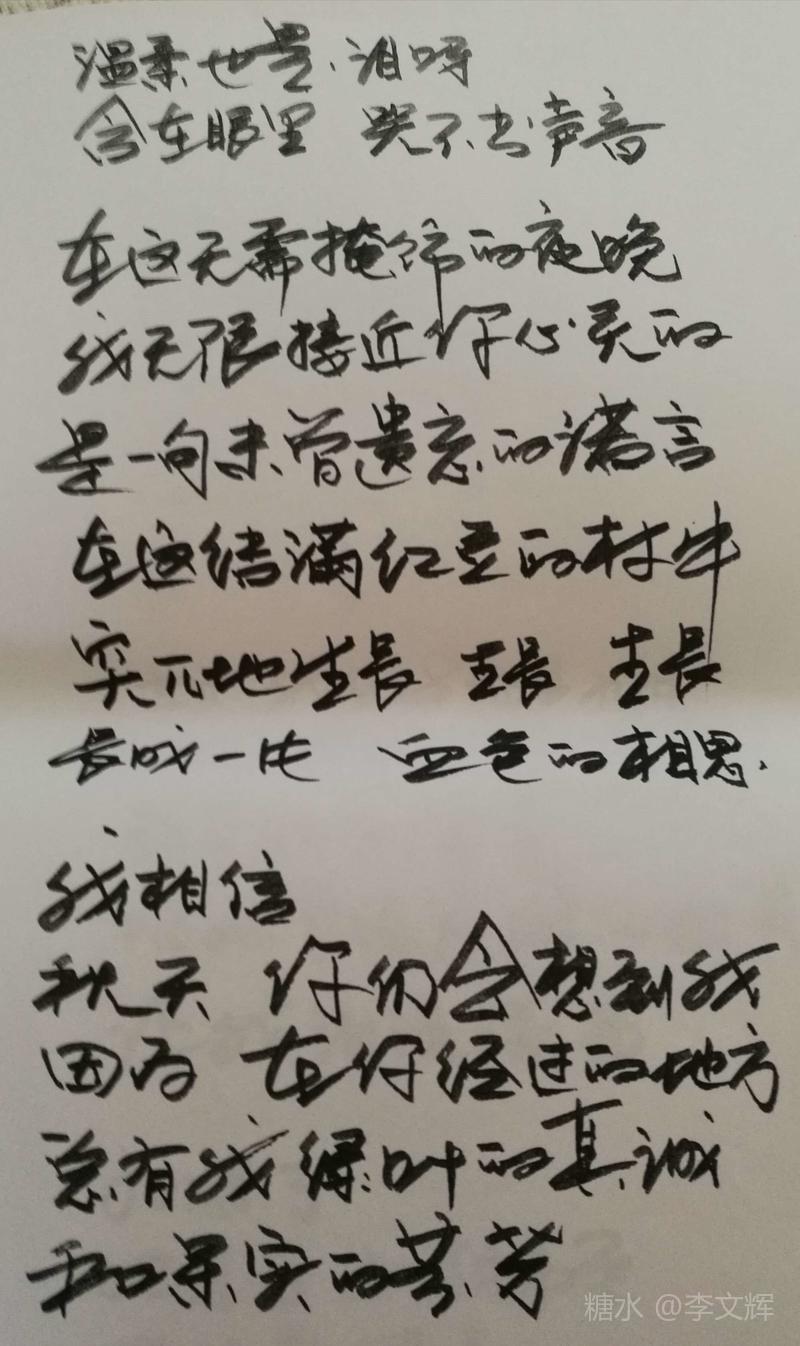 温柔也是 泪呀
含在眼里 哭不出声音
在这无需掩饰的夜晚
我无限接近你心灵的
是一句未曾遗忘的诺言
在这结满红豆的村
突兀地生长 生长 生长
长成一片 血色的相思.
我相信
秋天 你们会想到我
因为 在你经过的地方
总有我绿叶的真诚
和果实的芬芳
糖水 @李文辉